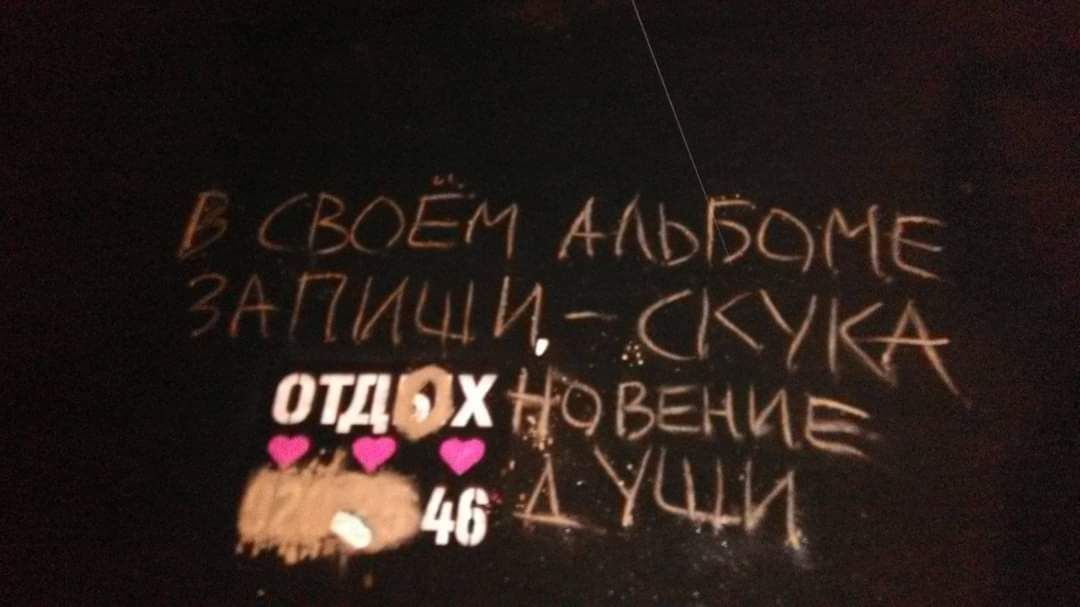 В СВОЁМ АЛЬБОМЕ
ЗАПИШИ, - СКУКА
ОТДОХНОВЕНИЕ
46 ДУШИ